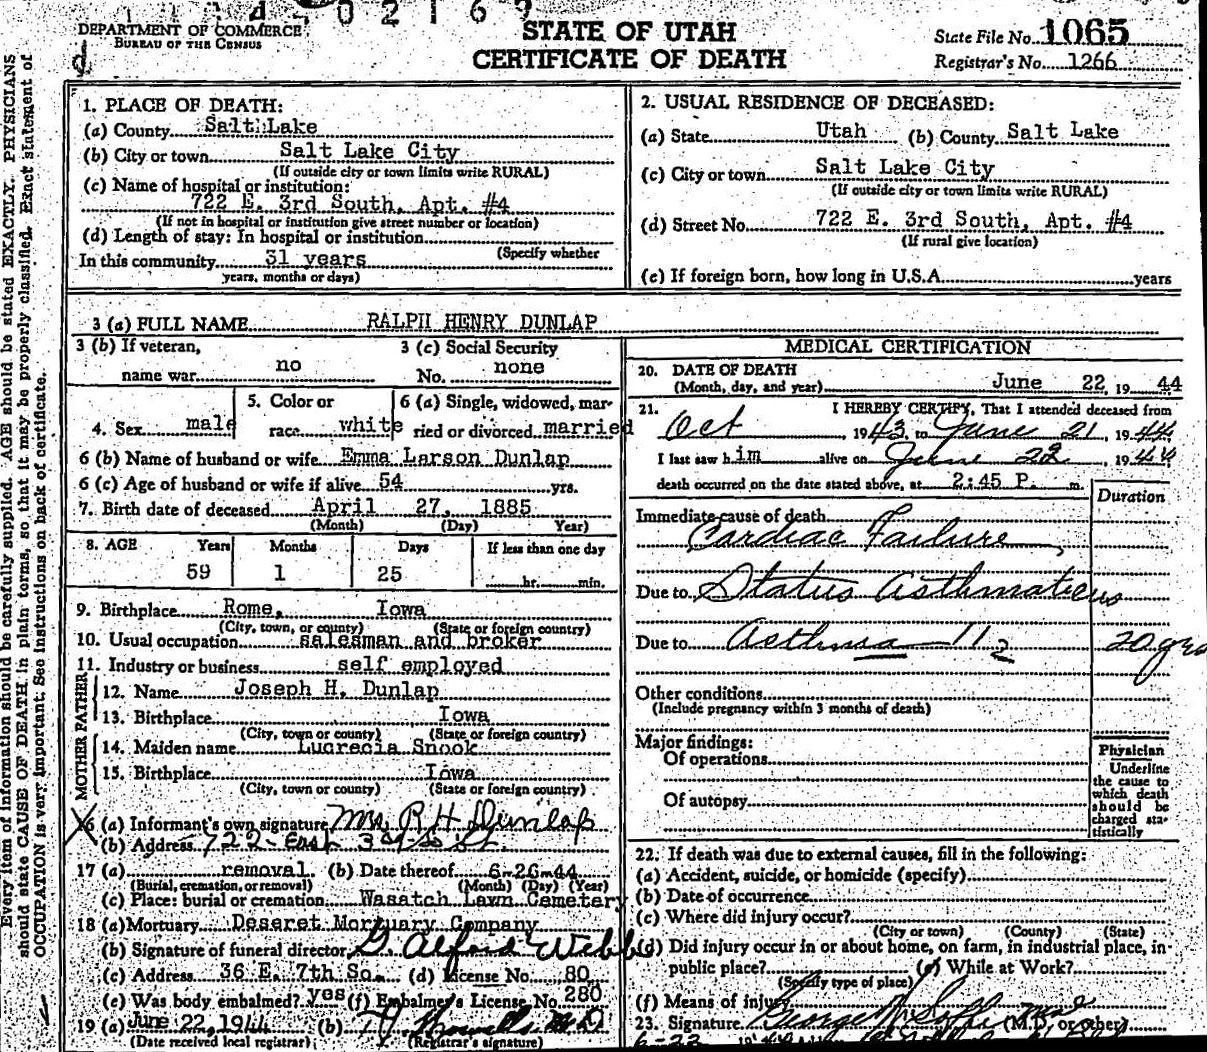 DEPARTMENT OF COMMERCE
BUREAU OF THE CENSUS
STATE OF UTAH
CERTIFICATE OF DEATH
State File No. 1065
Registrar's No. 1266
Every item of information should be carefully supplied. AGE should be stated EXACTLY. PHYSICIANS
should state CAUSE OF DEATH in plain terms, so that it may be properly classified. Exact statement of
OCCUPATION is very important. See instructions on back of certificate.
1. PLACE OF DEATH:
(a) County Salt Lake
(b) City or town Salt Lake City
(If outside city or town limits write RURAL)
(c) Name of hospital or institution:
722 E. 3rd South, Apt. #4
(If not in hospital or institution give street number or location)
(d) Length of stay: In hospital or institution
(Specify whether
In this community 31 years
years, months or days)
2. USUAL RESIDENCE OF DECEASED:
(a) State Utah (b) County Salt Lake
(c) City or town Salt Lake City
(If outside city or town limits write RURAL)
(d) Street No. 722 E. 3rd South, Apt. #4
(If rural give location)
(e) If foreign born, how long in U.S.A. years
3 (a) FULL NAME RALPH HENRY DUNLAP
3 (b) If veteran,
name war no
3 (c) Social Security
No. none
4. Sex male
5. Color or
race white
6 (a) Single, widowed, mar-
ried or divorced married
6 (b) Name of husband or wife Emma Larson Dunlap
6 (c) Age of husband or wife if alive 54 yrs.
7. Birth date of deceased April 27, 1885
(Month) (Day) Year)
8. AGE Years Months Days If less than one day
59 1 25 hr. min.
9. Birthplace Rome, Iowa
(City, town, or county) (State or foreign country)
10. Usual occupation salesman and broker
11. Industry or business self employed
FATHER
12. Name Joseph H. Dunlap
13. Birthplace Iowa
(City, town or county) (State or foreign country)
MOTHER
14. Maiden name Lucrecia Snook
15. Birthplace Iowa
(City, town or county) (State or foreign country)
16 (a) Informant's own signature Mrs. R H Dunlap
(b) Address 722 - East 3rd So St.
17 (a) removal (b) Date thereof 6-26-44
(Burial, cremation, or removal) (Month) (Day) (Year)
(c) Place: burial or cremation Wasatch Lawn Cemetery
18 (a) Mortuary Deseret Mortuary Company
(b) Signature of funeral director Alford Webb
(c) Address 36 E. 7th So. (d) License No. 80
(e) Was body embalmed? yes (f) Embalmer's License No. 280
19 (a) June 22, 1944 (b)
(Date received local registrar) (Registrar's signature)
MEDICAL CERTIFICATION
20. DATE OF DEATH
(Month, day, and year) June 22, 1944
21. I HEREBY CERTIFY, That I attended deceased from
Oct 1943 to June 21, 1944
I last saw him alive on June 22, 1944
death occurred on the date stated above, at 2:45 P. m.
Duration
Immediate cause of death
Cardiac Failure
Due to Status Asthmaticus
Due to Asthma 112 20 yrs
Other conditions
(Include pregnancy within 3 months of death)
Major findings:
Of operations
Of autopsy
Physician
Underline
the cause to
which death
should be
charged sta-
tistically
22. If death was due to external causes, fill in the following:
(a) Accident, suicide, or homicide (specify)
(b) Date of occurrence
(c) Where did injury occur?
(City or town) (County) (State)
(d) Did injury occur in or about home, on farm, in industrial place, in
public place? (e) While at Work?
(Specify type of place)
(f) Means of injury
23. Signature George (M.D. or other)